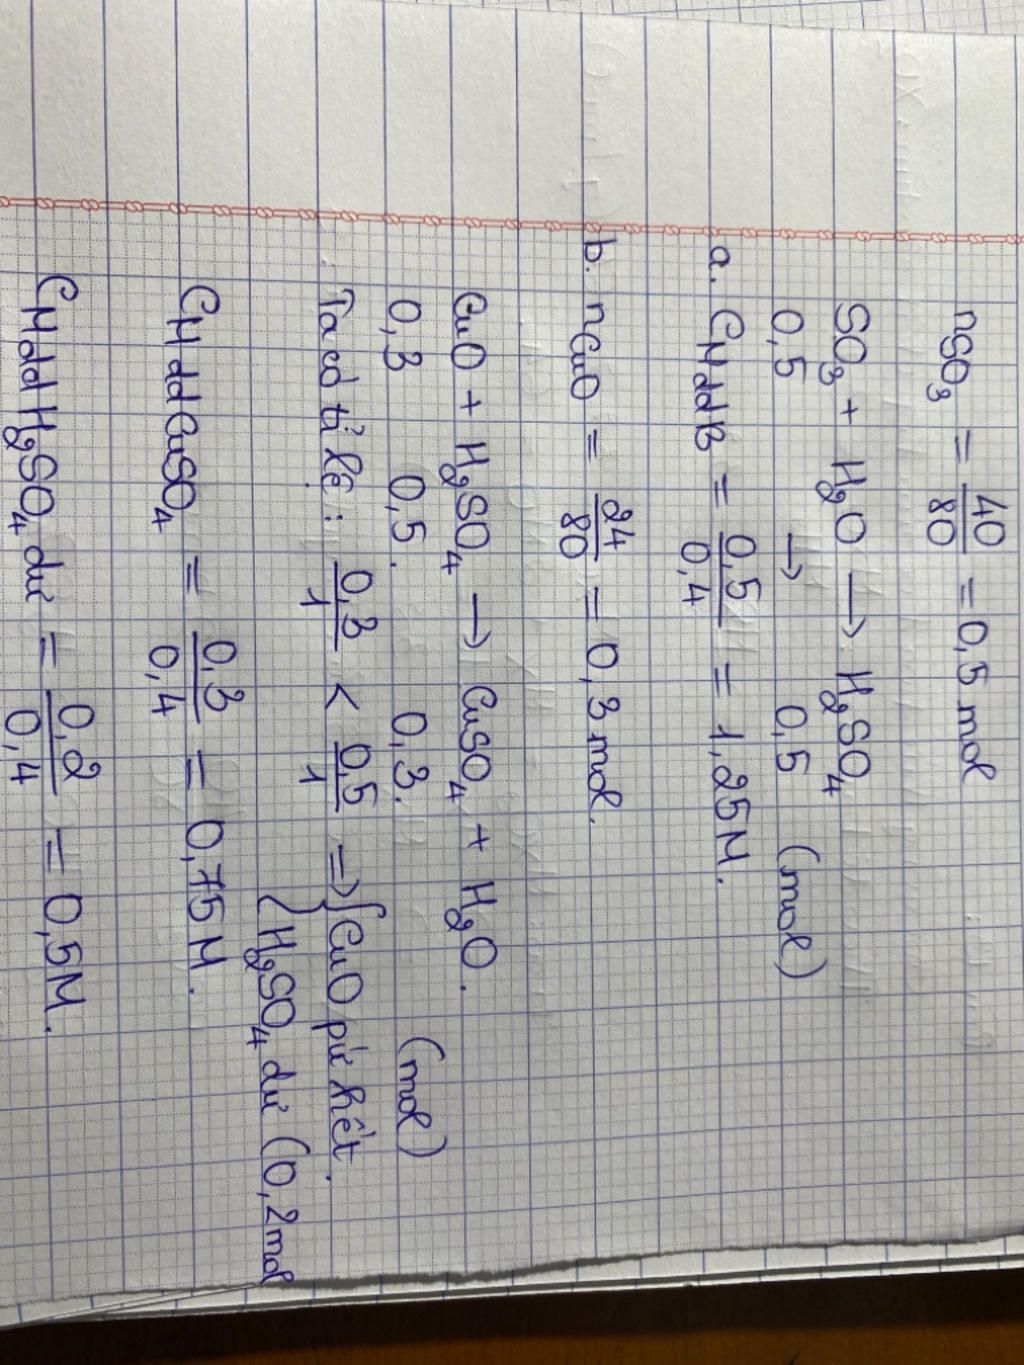 nSO₃ = 40/80 = 0,5 mol
SO₃ + H₂O → H₂SO₄
0,5 → 0,5 (mol)
a. CM ddB = 0,5/0,4 = 1,25M.
b. nCuO = 24/80 = 0,3 mol.
CuO + H₂SO₄ → CuSO₄ + H₂O.
0,3 0,5. 0,3. (mol)
Ta có tỉ lệ: 0,3/1 < 0,5/1 => { CuO pứ hết.
H₂SO₄ dư (0,2mol
CM ddCuSO₄ = 0,3/0,4 = 0,75M.
CM ddH₂SO₄ dư = 0,2/0,4 = 0,5M.